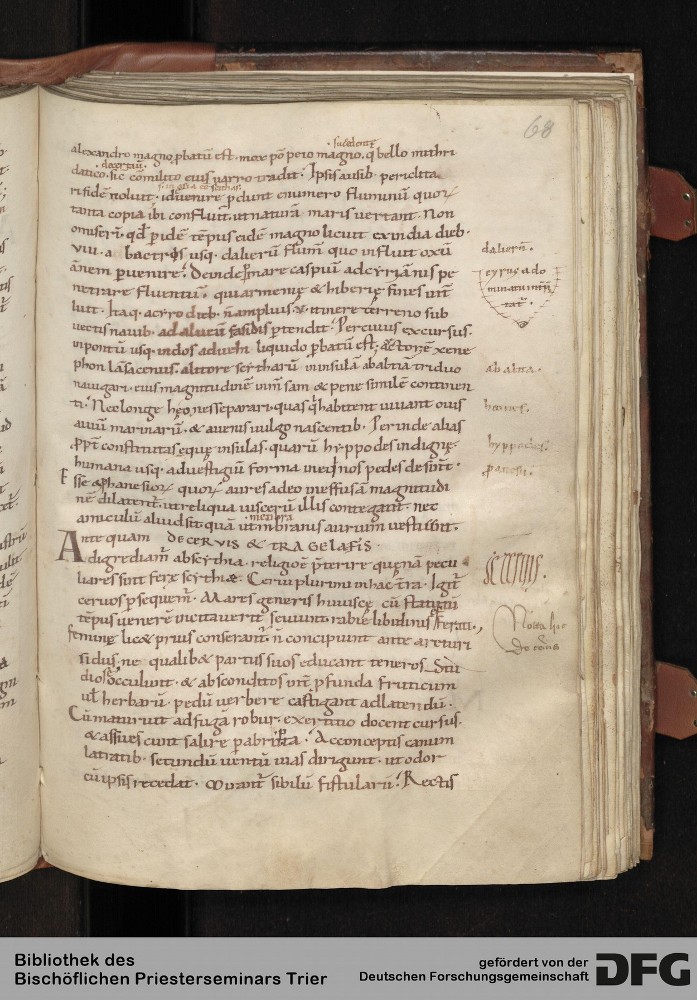 68
subeunte
alexandro magno ꝓbatū est. mox pōpeio magno. q̄ bello mithri
decertans
datico. sic cōmilito eius varro tradit. Ipsis ausib; periclita
ri fidē noluit. id iuuenire ꝑdunt e numero fluminū quoꝝ
tanta copia ibi confluit. ut naturā maris uertant. Non
omiserī. qđ ꝑ idē tēpus eidē magno licuit ex india dieb.
VIII. a bactros usq. dalierū flum̄ quo influit oxū
ānem ꝑuenire. Deinde mare caspiū ad cyriānus pe
netrare fluentū. qui armenię & hiberię fines int̄
luit. Itaq. a cyro dieb. n̄ amplius. V. itinere terreno sub
uectis nauib. ad alueū fasidis ꝑtendit. Per cuius excursus.
in pontū usq. indos aduehi liquido ꝓbatū est. Auctorē xeno
phon lāsacenus. a litore scytharū in insulā abaltiā triduo
nauigari. eius magnitudinē inm̄sam & pene similē continen
ti. Nec longe heones separari. quas q̄ habitent uiuant ouis
auiū marinarū. & auenis uulgo nascentib. Perinde alias
ꝓpt̄ constitutas eque insulas. quarū hyppodes indignę.
humana usq. ad uestigiū forma in eqnos pedes desinit.
Esse & phanesioꝝ quoꝝ aures adeo in effusā magnitudi
nē dilatent̄. ut reliqua uiscerū illis contegant. nec
amiculū aliud sit quā ut mēbranis aurium uestiunt.
Ante quam DE CERVIS & TRAGELAFIS
digrediam̄ ab scythia. religioē ꝑterire quęnā pecu
liares sint ferę scythiæ. Cerui plurimi in hac t̄ra. Igit̄
ceruos ꝑsequem̄. Mares generis huiusce cū statutū
tēpus uenerē incitauerit seuiunt rabie libidinis efferati.
feminę lic& prius conserant̄. n̄ concipiunt ante arcturi
sidus. ne qualib& partus suos educant teneros. Stu
diose occulunt. & absconditos int̄ ꝓfunda fruticum
ul̄ herbarū. pedū uerbere castigant ad latendū.
Cū maturuit ad fugā robur. exercitio docent cursus.
& assuescunt salire ꝑ abrupta. Acceptis canum
latratib. secundū uentū uias dirigunt. ut odor
cū ipsis recedat. Mirant̄ sibilū fistularū. Rectis
dalierū.
cyrus a do
abaltia.
heones.
hyppodes.
phanesii.
DE CERVIS.
Nota hic
de ceruis
Bibliothek des
Bischöflichen Priesterseminars Trier
gefördert von der
Deutschen Forschungsgemeinschaft
DFG